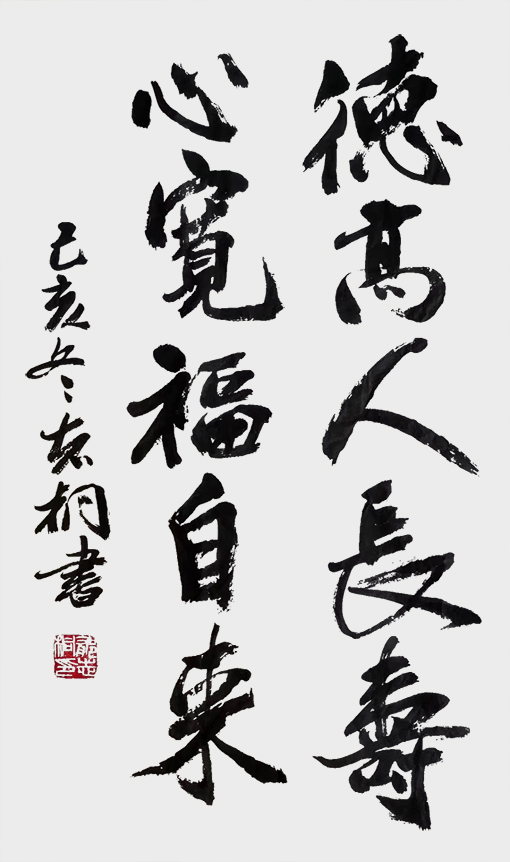 德高人長壽
心寬福自来
己亥冬志桐書